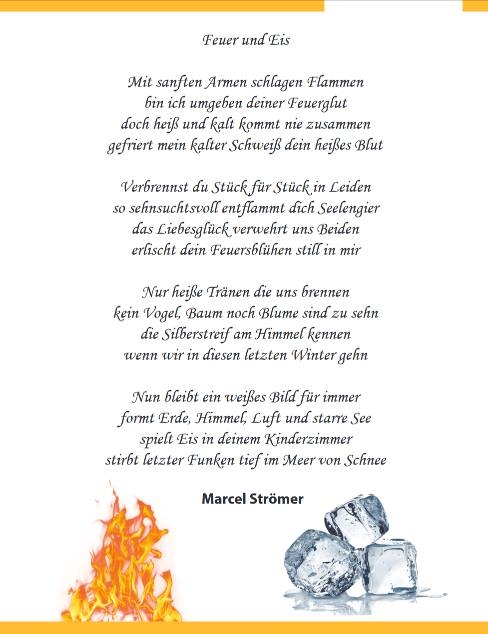 Feuer und Eis
Mit sanften Armen schlagen Flammen
bin ich umgeben deiner Feuerglut
doch heiß und kalt kommt nie zusammen
gefriert mein kalter Schweiß dein heißes Blut
Verbrennst du Stück für Stück in Leiden
so sehnsuchtsvoll entflammt dich Seelengier
das Liebesglück verwehrt uns Beiden
erlischt dein Feuersblühen still in mir
Nur heiße Tränen die uns brennen
kein Vogel, Baum noch Blume sind zu sehn
die Silberstreif am Himmel kennen
wenn wir in diesen letzten Winter gehn
Nun bleibt ein weißes Bild für immer
formt Erde, Himmel, Luft und starre See
spielt Eis in deinem Kinderzimmer
stirbt letzter Funken tief im Meer von Schnee
Marcel Strömer